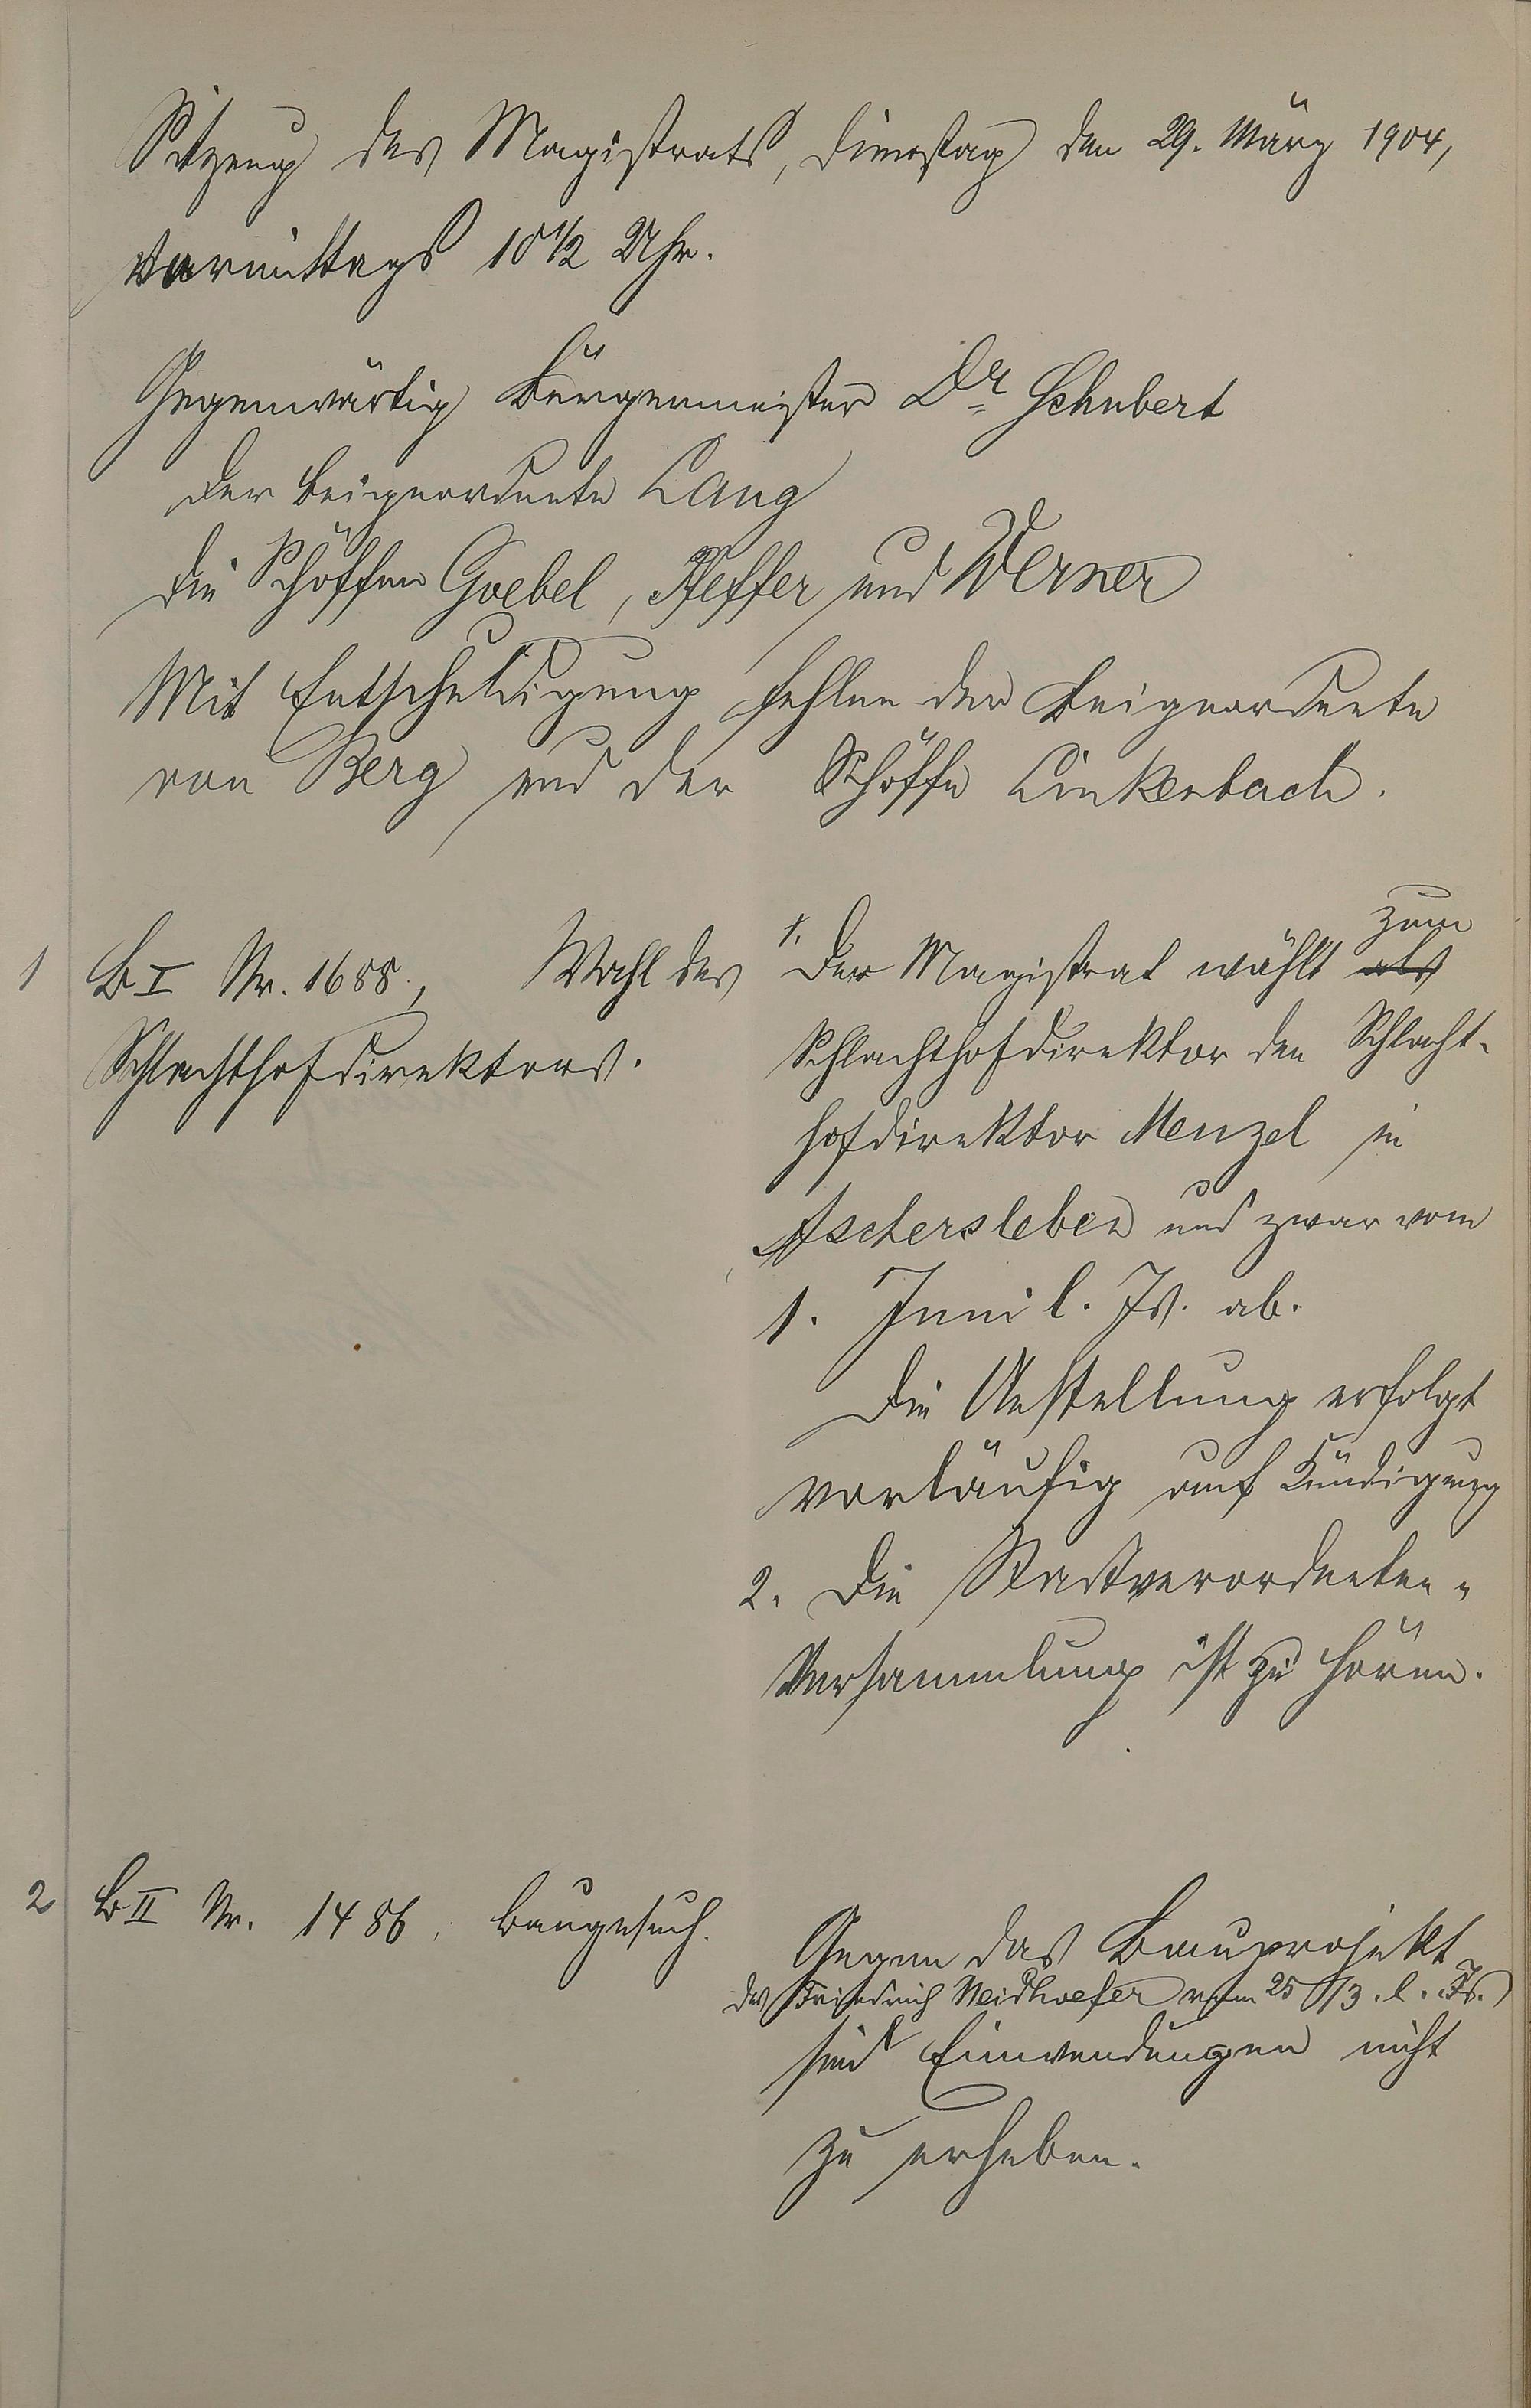 Sitzung des Magistrats, Dienstag den 29. März 1904,
Vormittags 10 1/2 Uhr.
Gegenwärtig Bürgermeister Dr. Schubert
der Beigeordnete Lang
die Schöffen Goebel, Pfeffer und Werner
Mit Entschuldigung fehlen der Beigeordnete
von Berg und der Schöffe Linkenbach.
1 B I Nr. 1688, Wahl des
Schlachthofdirektors.
1. Der Magistrat wählt als zum
Schlachthofdirektor den Schlacht-
hofdirektor Menzel in
Aschersleben und zwar vom
1. Juni l. Js. ab.
Die Anstellung erfolgt
vorläufig auf Kündigung
2. Die Stadtverordneten-
Versammlung ist zu hören.
2 B II Nr. 1486. Baugesuch.
Gegen das Bauprojekt
des Friedrich Neidhoefer vom 25/3. l. Js.
sind Einwendungen nicht
zu erheben.